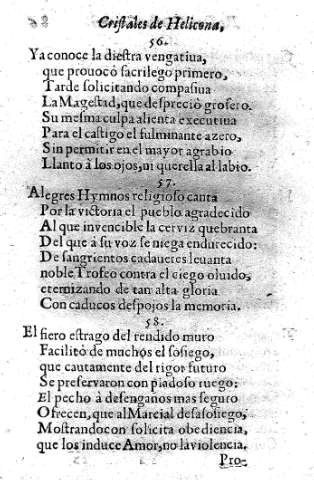 Cristales de Helicona,
56.
Ya conoce la diestra vengatiua,
que prouocò sacrilego primero,
Tarde solicitando compasiua
La Magestad, que despreciò grosero.
Su mesma culpa alienta executiua
Para el castigo el fulminante azero,
Sin permitir en el mayor agrabio
Llanto à los ojos, ni querella al labio.
57.
Alegres Hymnos religioso canta
Por la victoria el pueblo agradecido
Al que inuencible la cerviz quebranta
Del que à su voz se niega endurecido:
De sangrientos cadaueres leuanta
noble Trofeo contra el ciego oluido,
eternizando de tan alta gloria
Con caducos despojos la memoria.
58.
El fiero estrago del rendido muro
Facilitò de muchos el sosiego,
que cautamente del rigor futuro
Se preservaron con piadoso ruego:
El pecho à desengaños mas seguro
Ofrecen, que al Marcial desasosiego,
Mostrando con solicita obediencia,
que los induce Amor, no la violencia.
Pro-